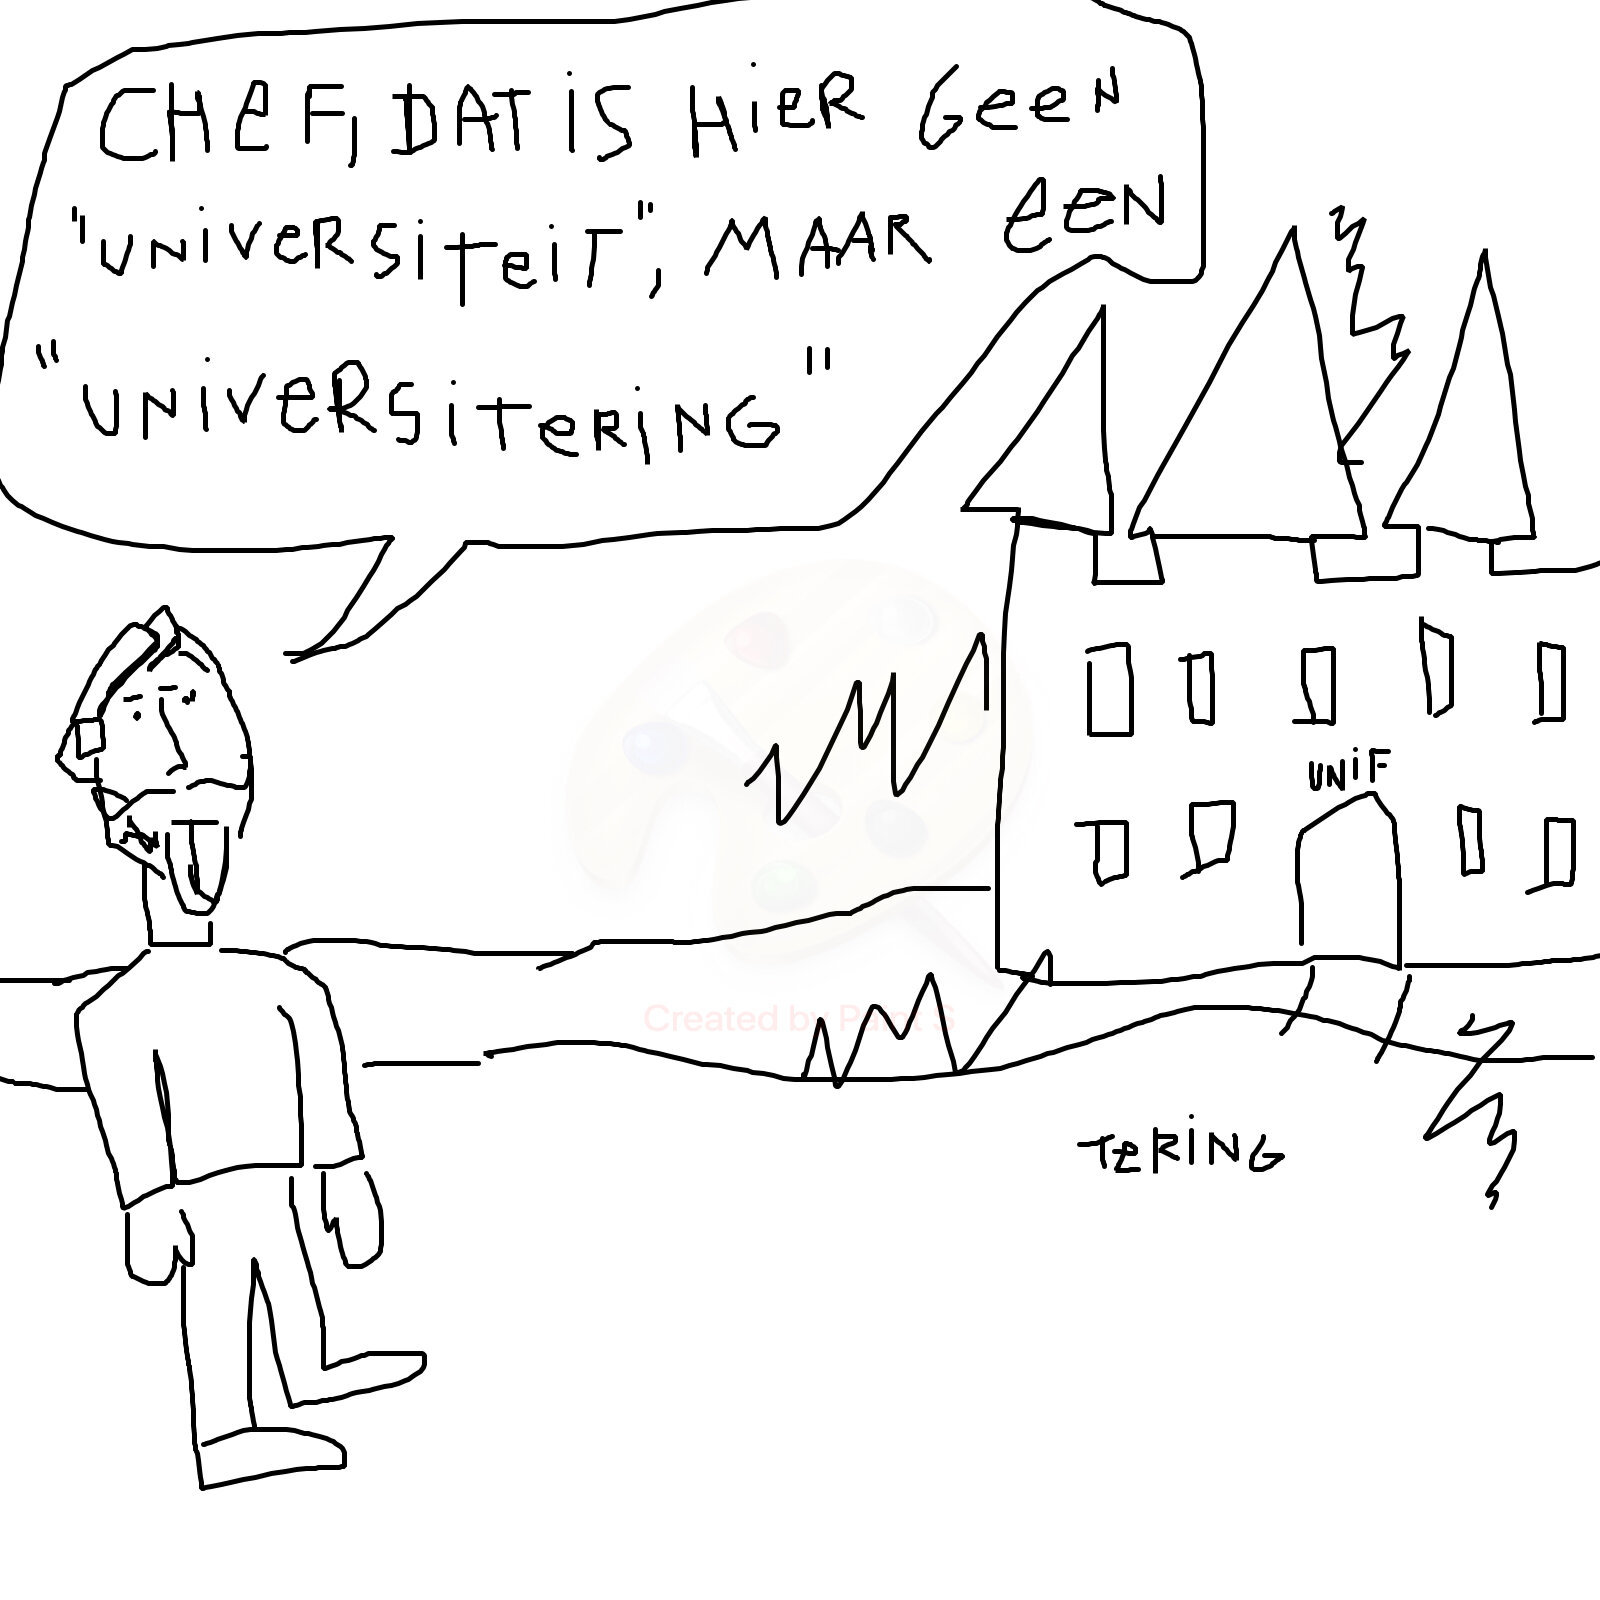 CHEF, DAT IS HIER GEEN
"UNIVERSITEIT", MAAR EEN
"UNIVERSITERING"
UNIF
Created by Paint S
TERING